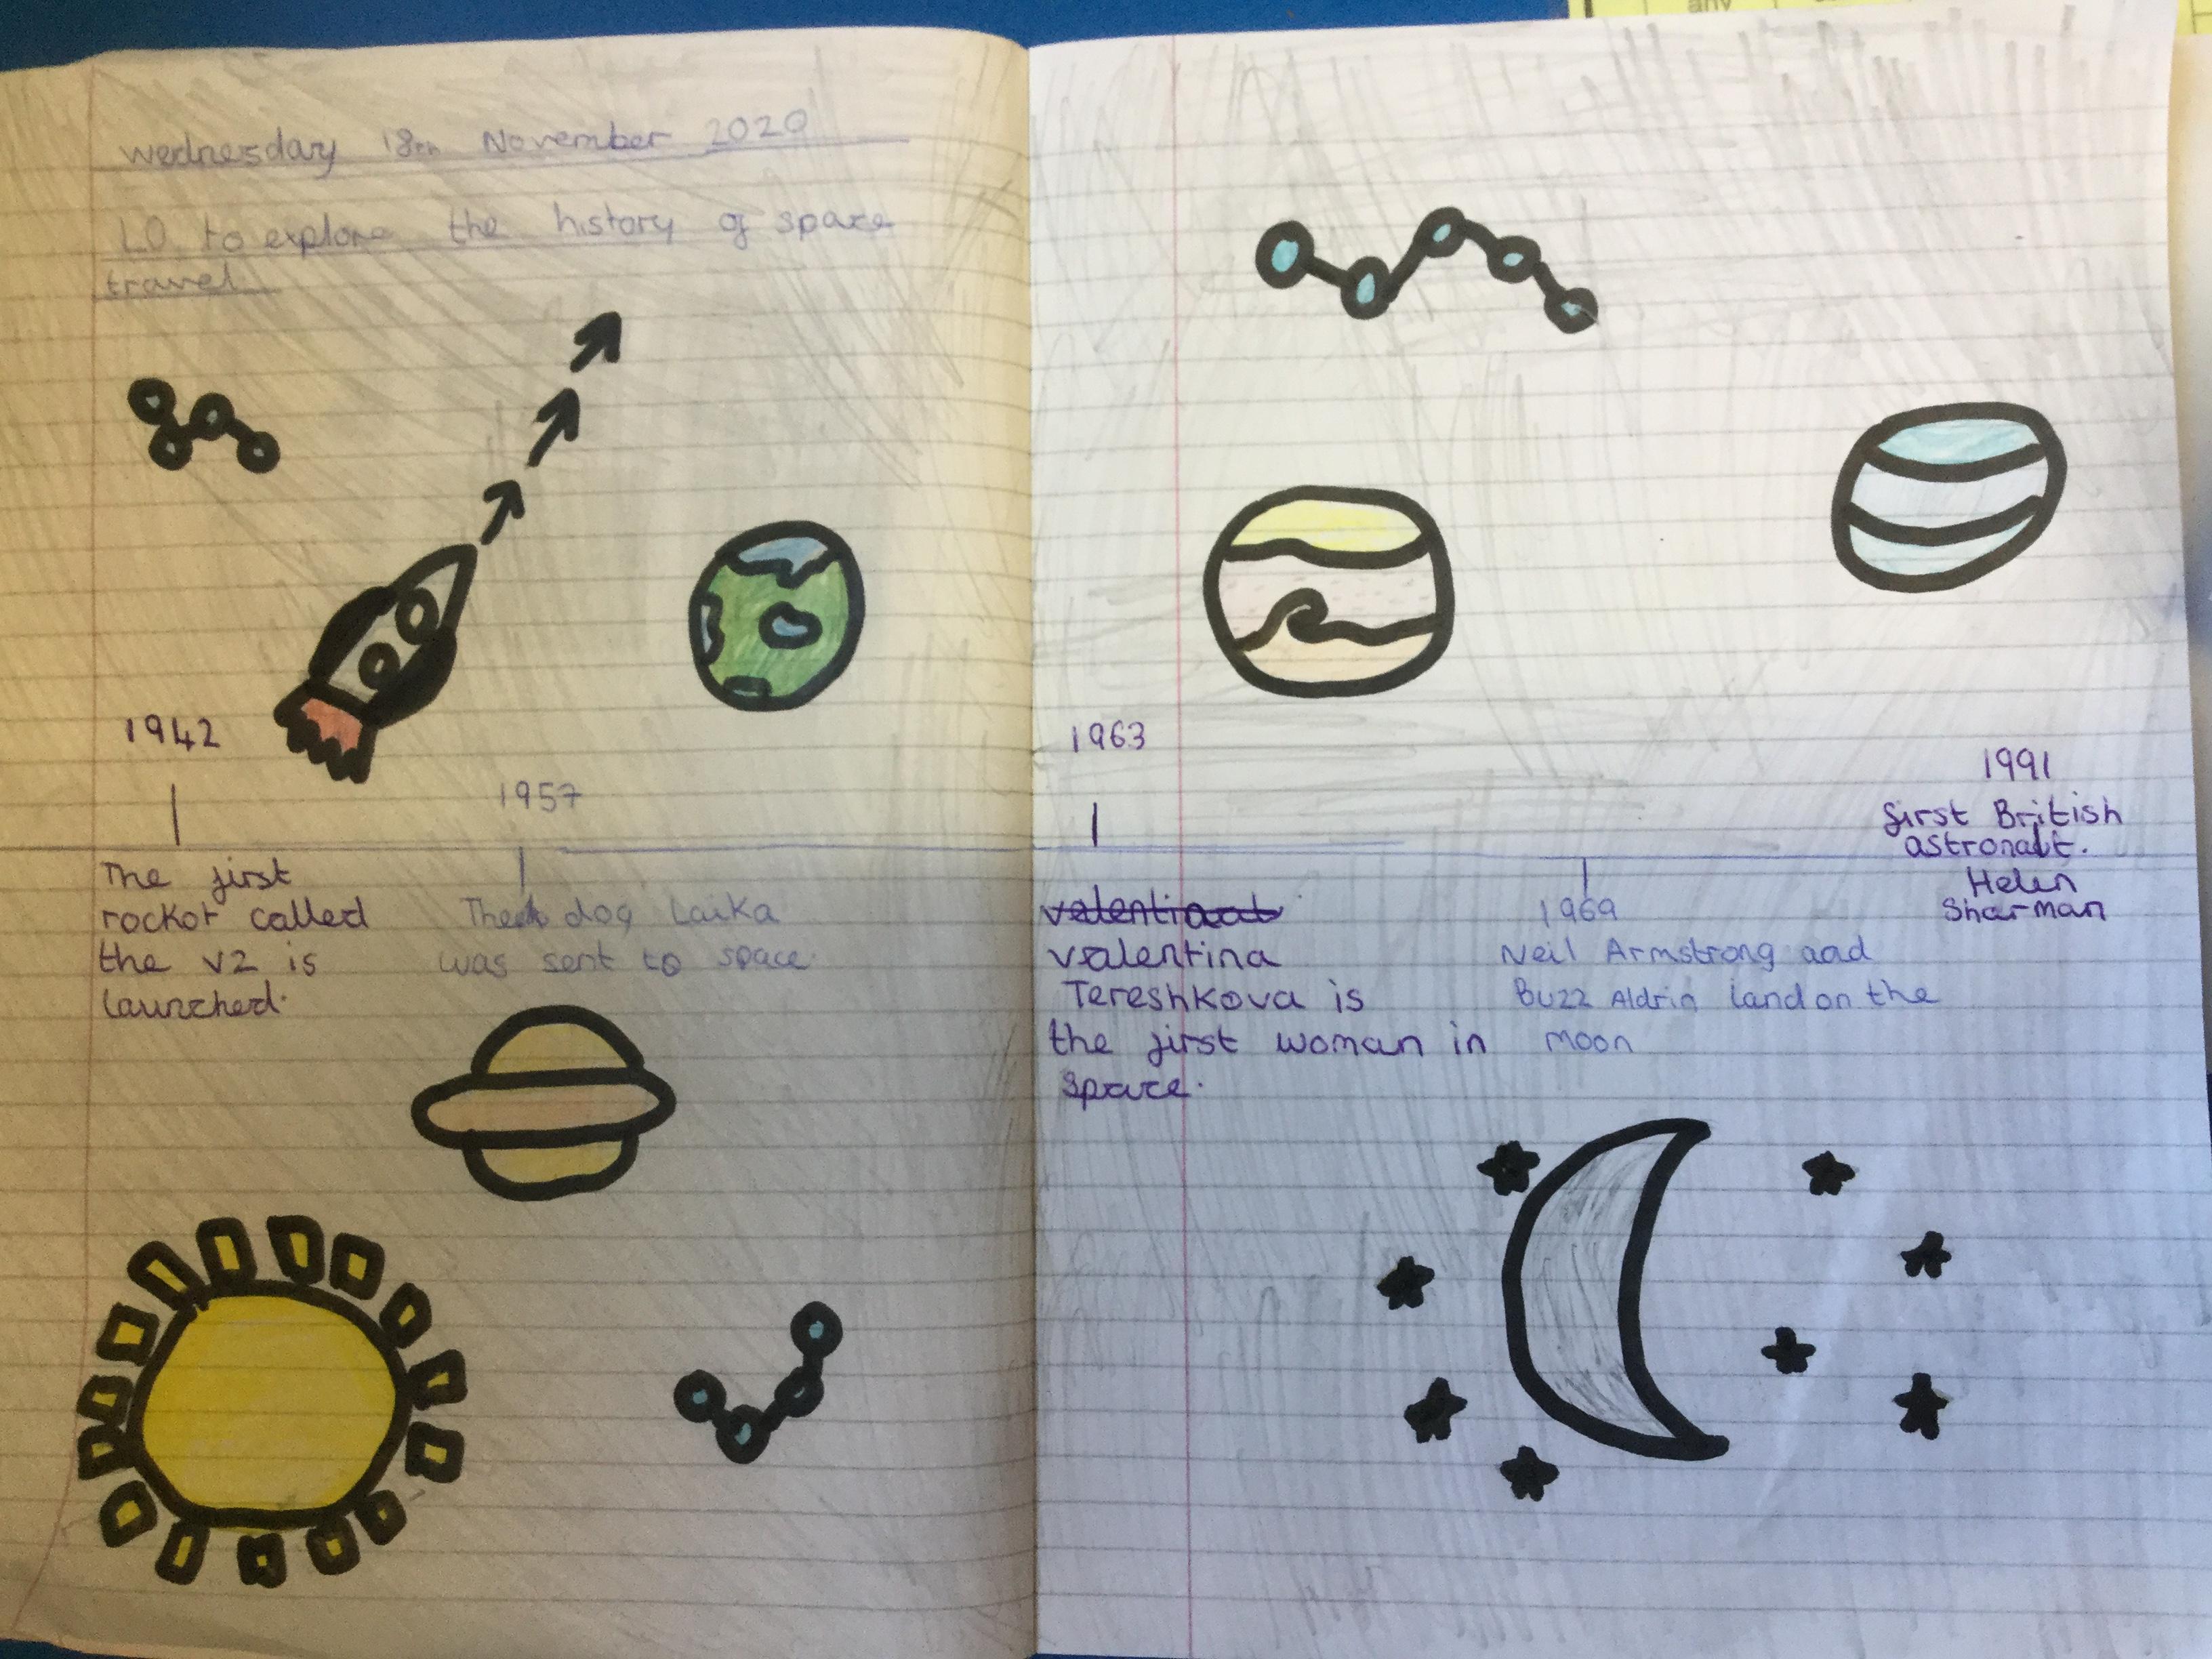 any
Wednesday 18th November 2020
LO to explore the history of space
travel
1942
The first
rocket called
the V2 is
launched.
1957
The dog Laika
was sent to space
1963
valentina
Tereshkova is
the first woman in
space.
1969
Neil Armstrong aad
Buzz Aldrin land on the
moon
1991
first British
astronalt.
Helen
Sharman